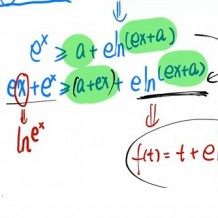 ⇓
eˣ ≥ a + eln(ex+a)
ex + eˣ ≥ (a+ex) + eln(ex+a)
⇓ ⇓
lneˣ
f(t) = t + e